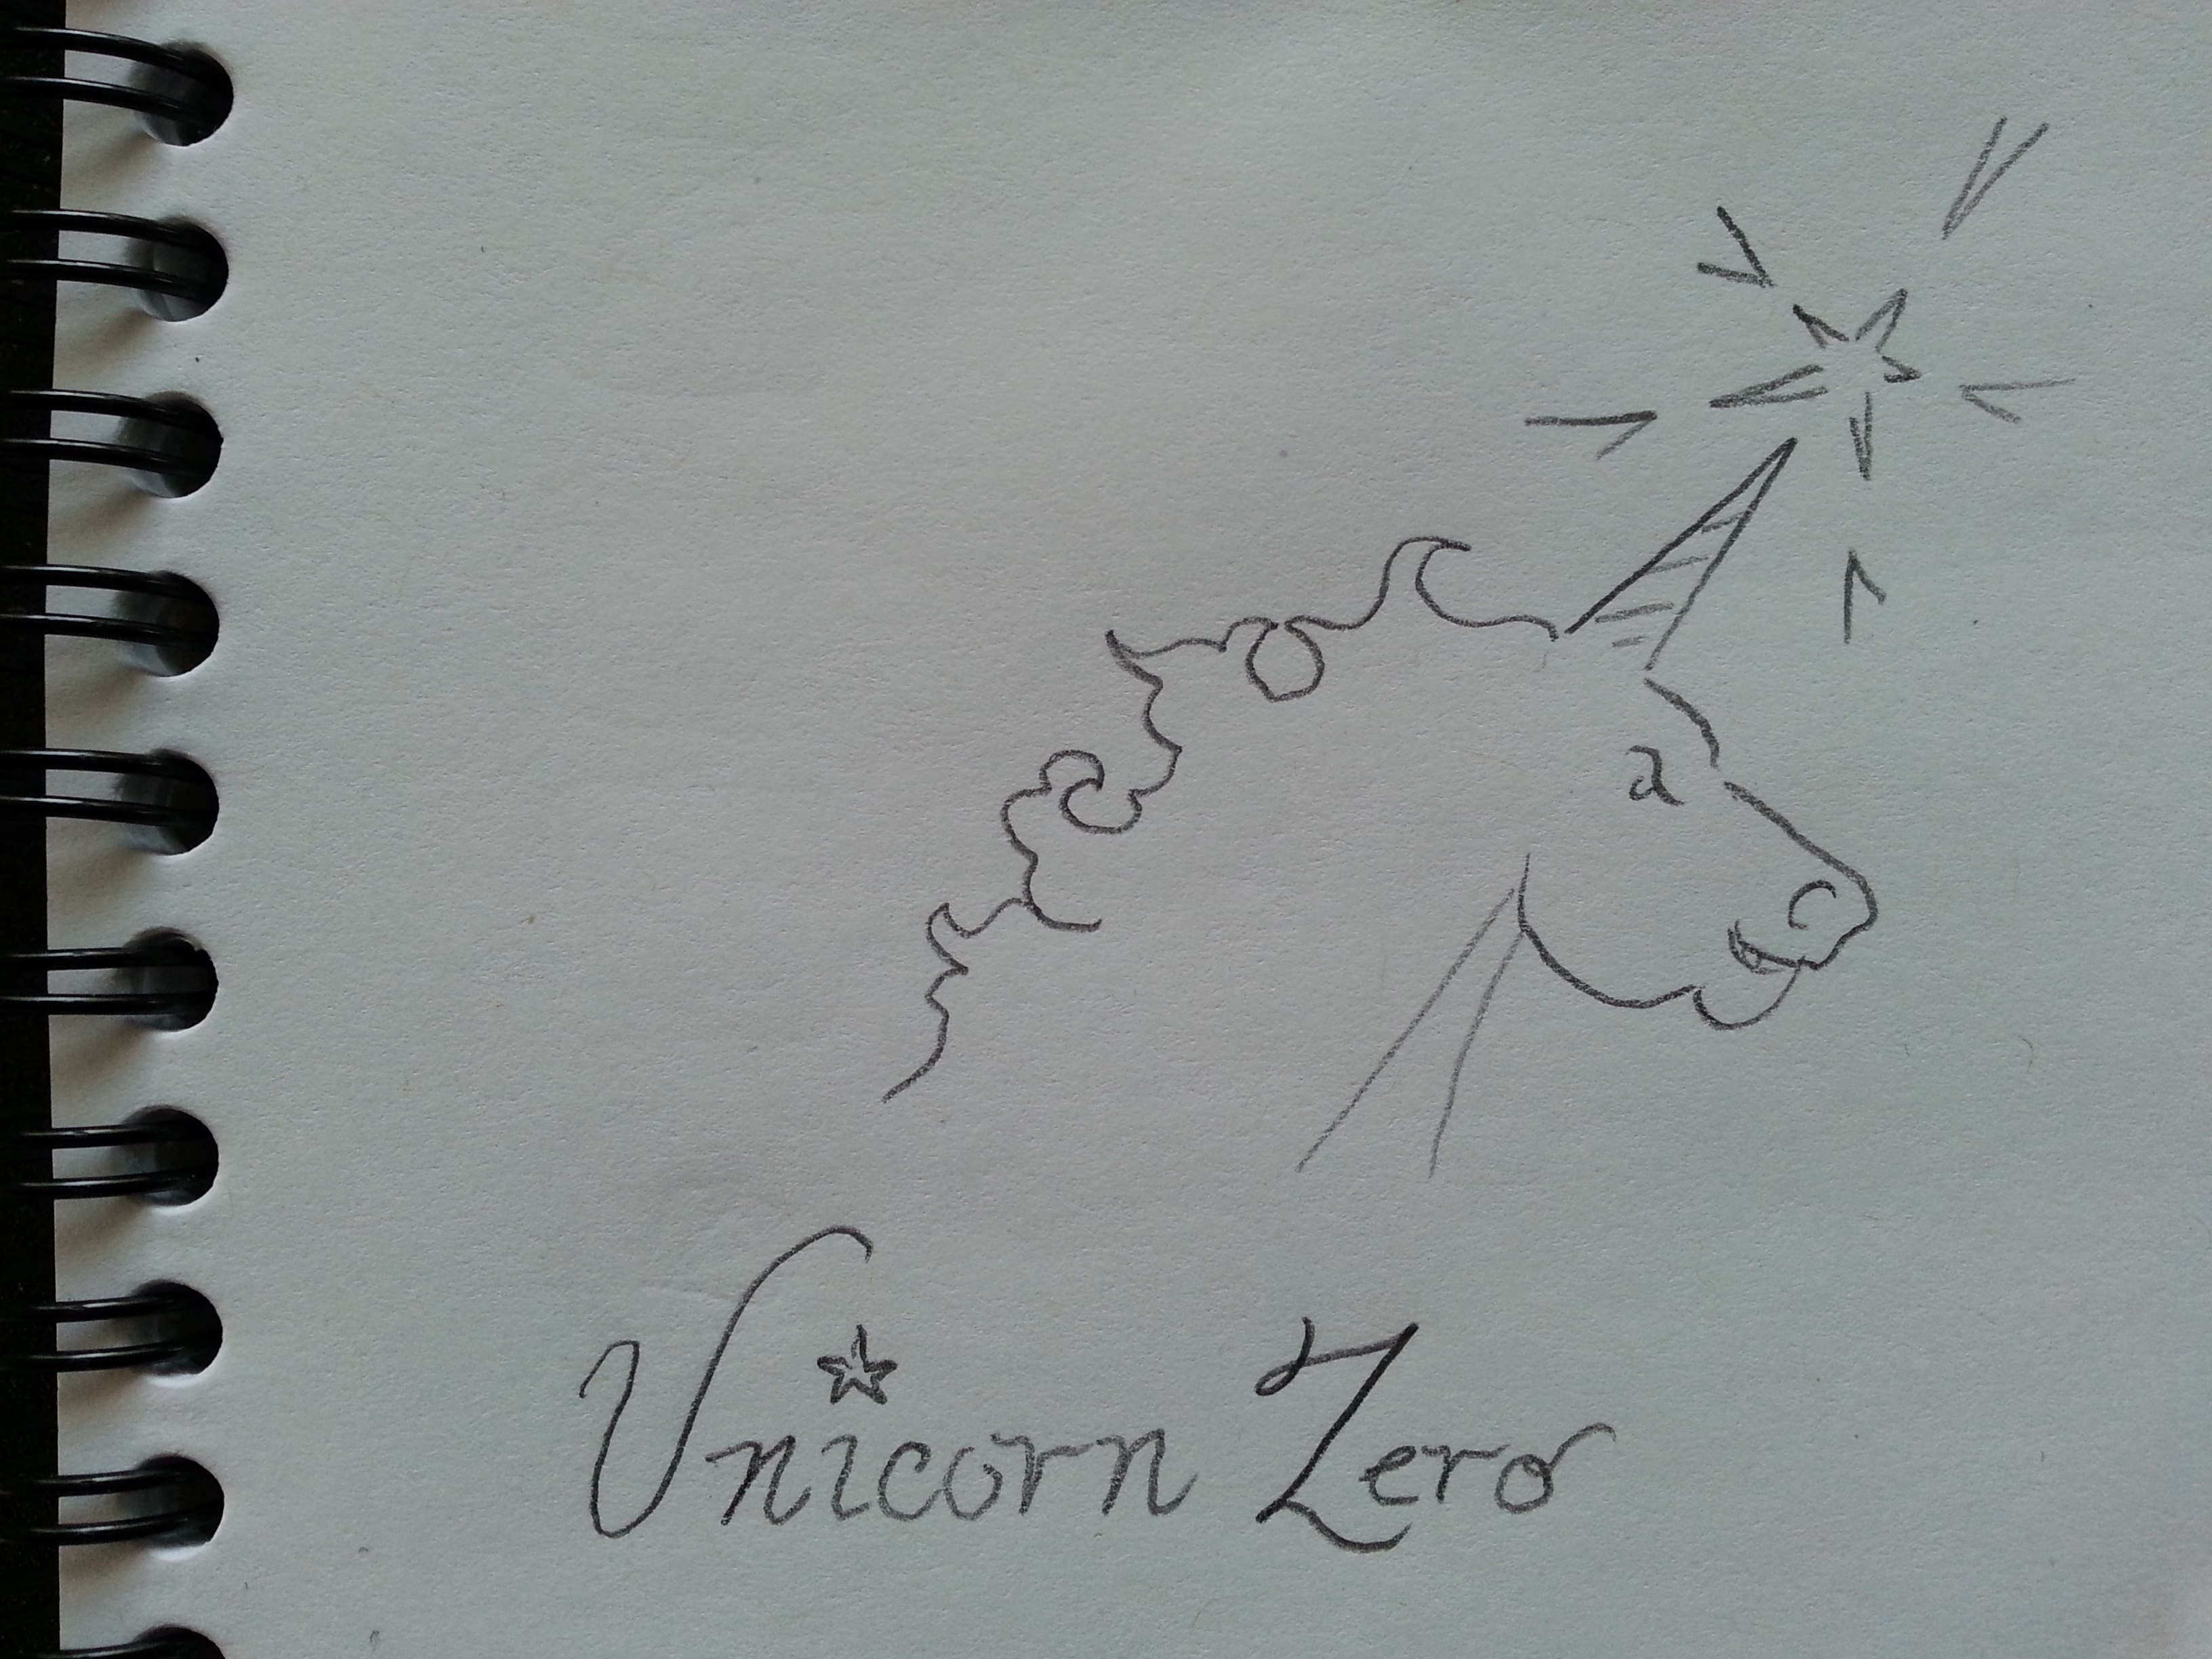 Unicorn Zero